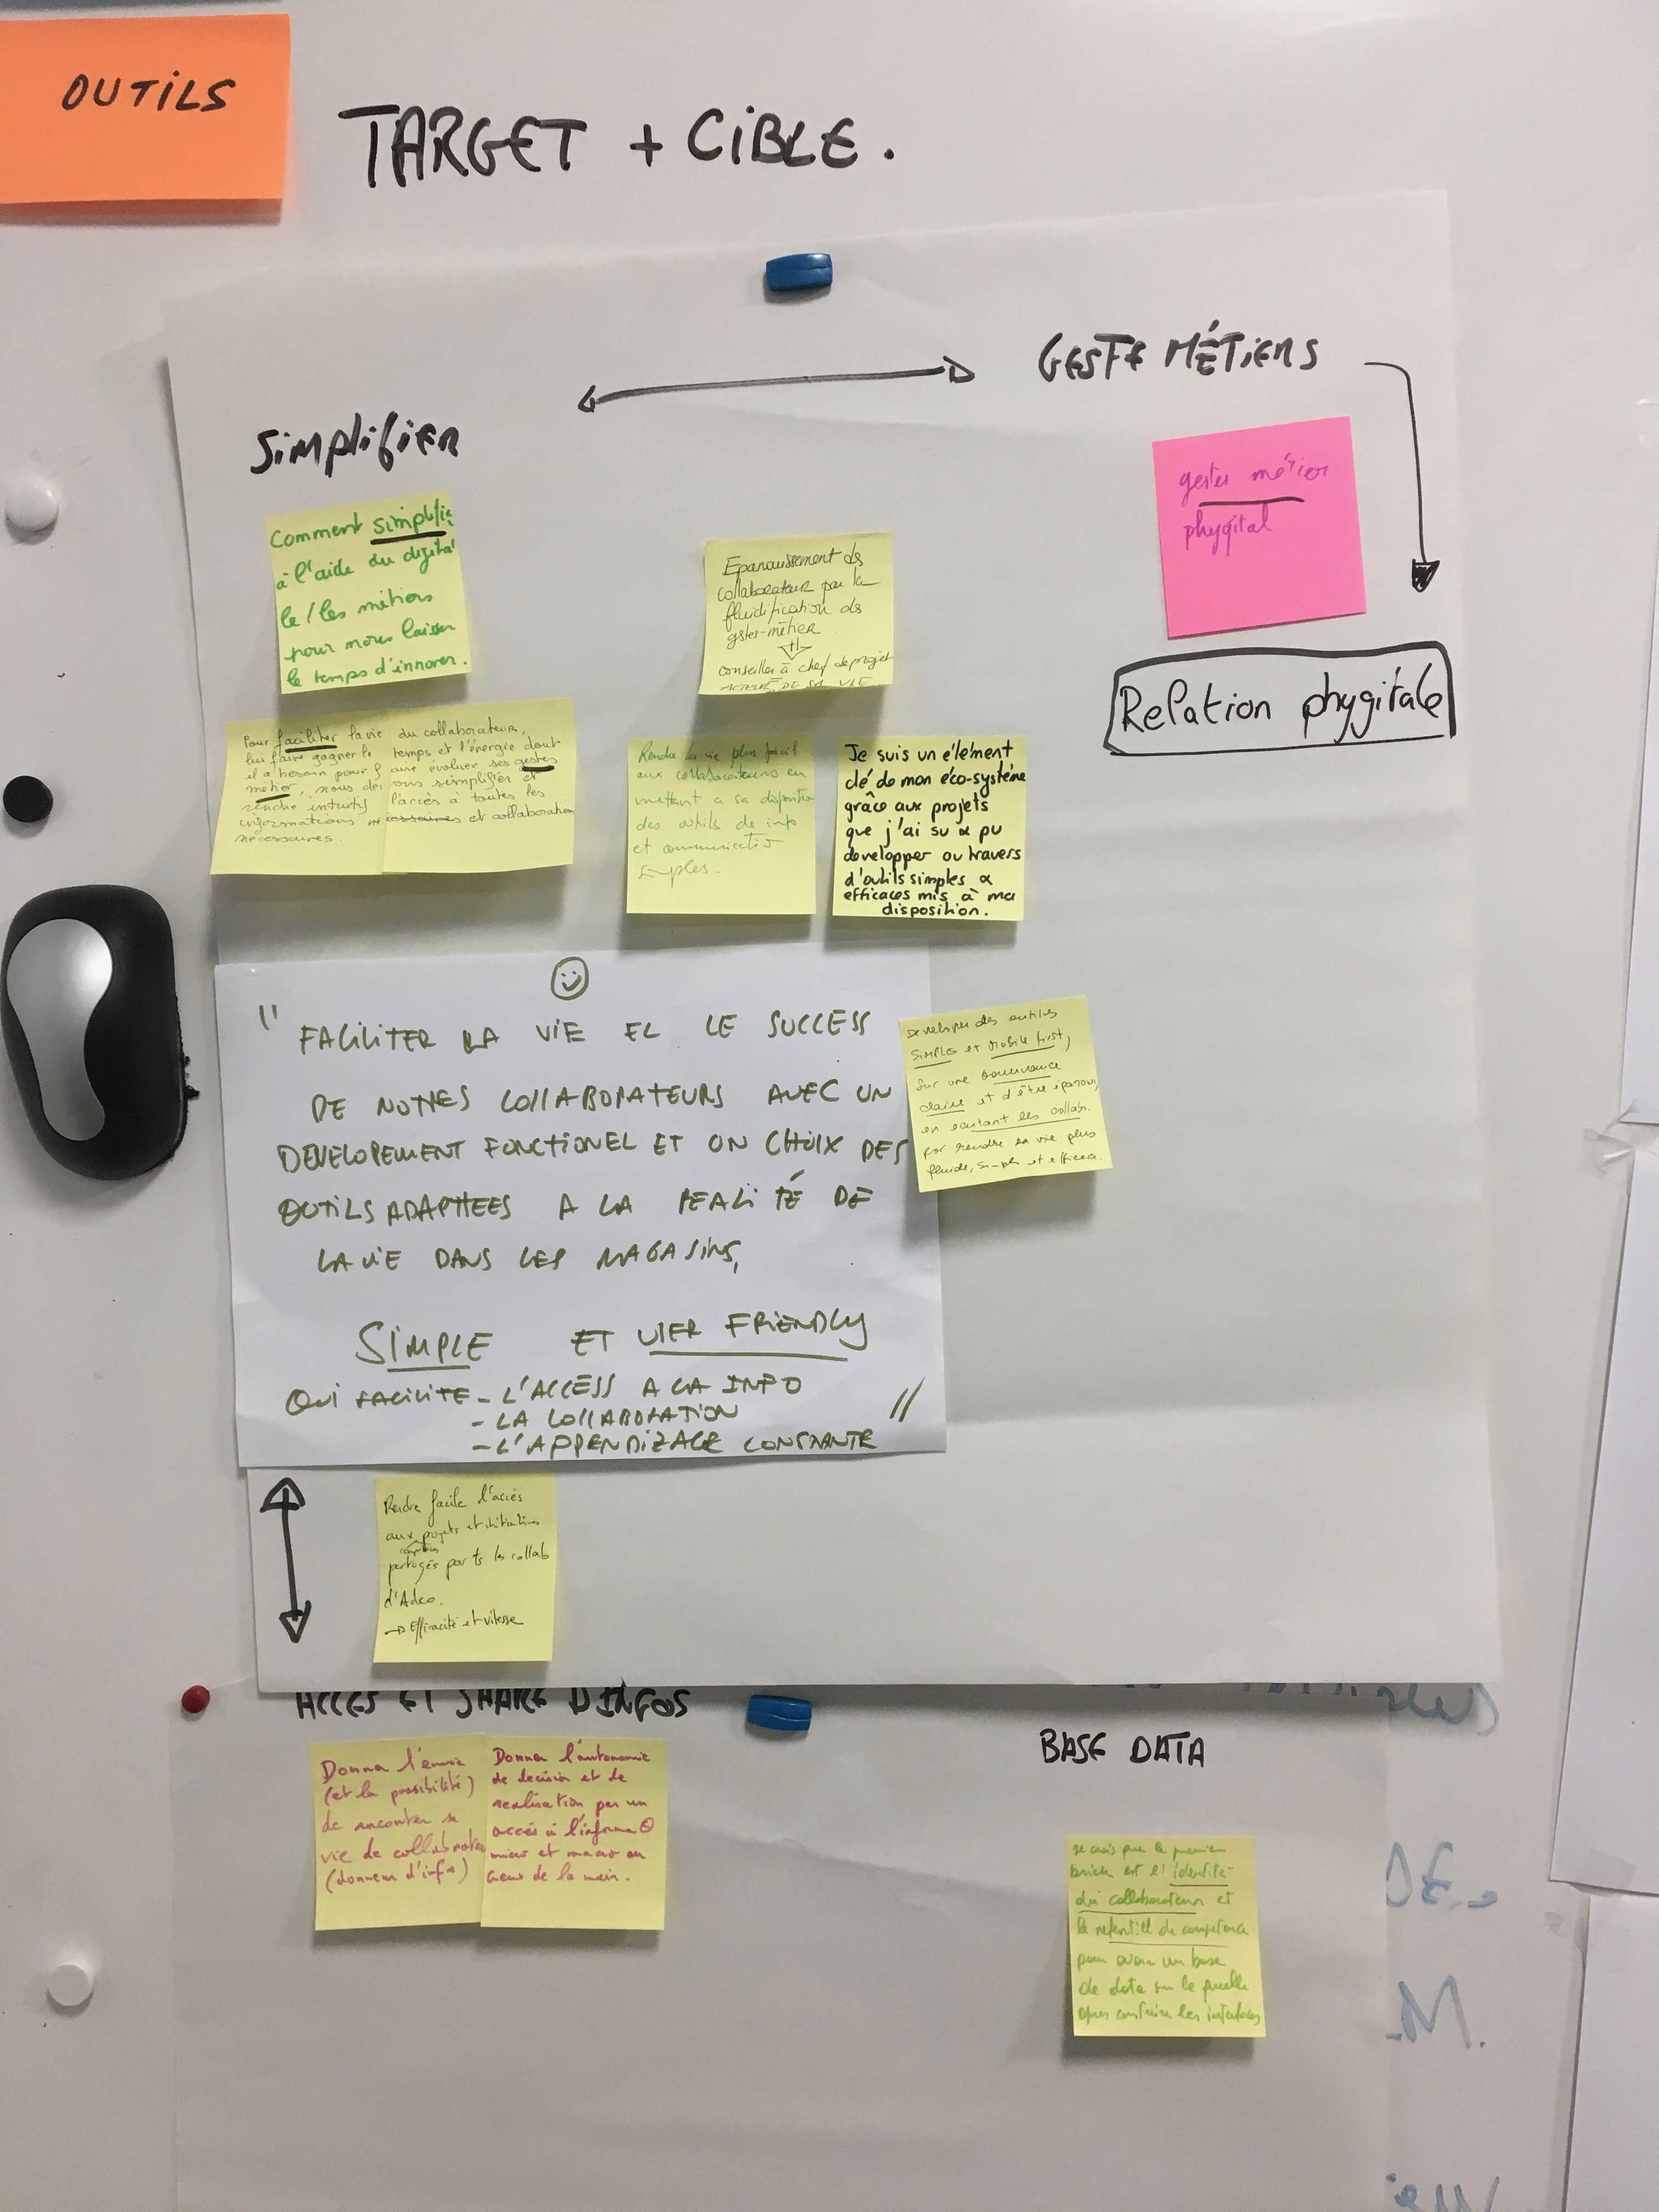 OUTILS
TARGET + CIBLE.
GESTE MÉTIERS
Simplifier
gestes métier
phygital
Relation phygitale
Comment simplifie
à l'aide du digital
le/les métiers
pour nous laisser
le temps d'innover.
Epanouissement ds
collaborateur par la
fluidification ds
gstes-métier
+
conseiller à chef de projet
ACTEUR DE SA VIE
Pour faciliter la vie du collaborateur,
lui faire gagner le temps et l'énergie dont
il a besoin pour faire évoluer ses gestes
métier, nous devons simplifier et
rendre intuitif l'accès à toutes les
informations nécessaires et collaboration
nécessaires.
Rendre la vie plus facil
aux collaborateurs en
mettant a sa disposition
des outils de info
et communication
simples.
Je suis un élément
clé de mon éco-système
grâce aux projets
que j'ai su & pu
développer au travers
d'outils simples &
efficaces mis à ma
disposition.
" FACILITER LA VIE ET LE SUCCESS
DE NOTRES COLLABORATEURS AVEC UN
DEVELOPEMENT FONCTIONEL ET UN CHOIX DES
OUTILS ADAPTEES A LA REALITÉ DE
LA VIE DANS LES MAGASINS,
SIMPLE ET USER FRIENDLY
QUI FACILITE - L'ACCESS A LA INFO
- LA COLLABORATION
- L'APPRENDIZAGE CONSTANTE "
Developper des outils
SIMPLES et Mobile first,
Sur une Gouvernance
claire et d'être épanoui,
en écoutant les collab.
por rendre sa vie plus
fluide, simple et efficace.
Rendre facile l'accès
aux projets et initiatives
partagés par ts les collab
d'Adeo.
→ Efficacité et vitesse
ACCES ET SHARE D'INFOS
Donner l'envie
(et la possibilité)
de raconter sa
vie de collaborateur
(donneur d'infos)
Donner l'autonomie
de décision et de
réalisation par un
accès à l'informa
micro et macro au
creux de la main.
BASE DATA
Je crois que la premier
brick est l'identité
du collaborateur et
le referntiel de competence
pour avoir un base
de data sur le quelle
apres construire les interfaces